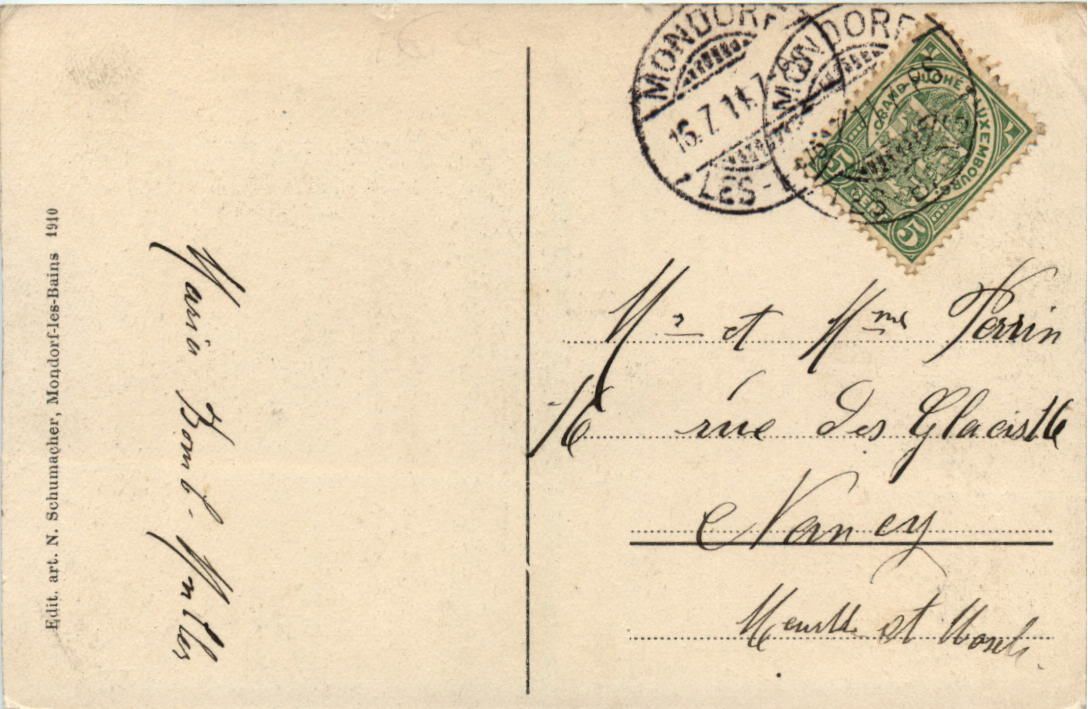 Edit. art. N. Schumacher, Mondorf-les-Bains 1910
Maria Bomb-
MONDORF
16.7.11.7-8
LES-
MONDORF
LES-
GRAND-DUCHÉ LUXEMBOURG
5
5
Mr et Mme Perrin
16 rue des Glacis 16
Nancy
Meurthe et Mosele